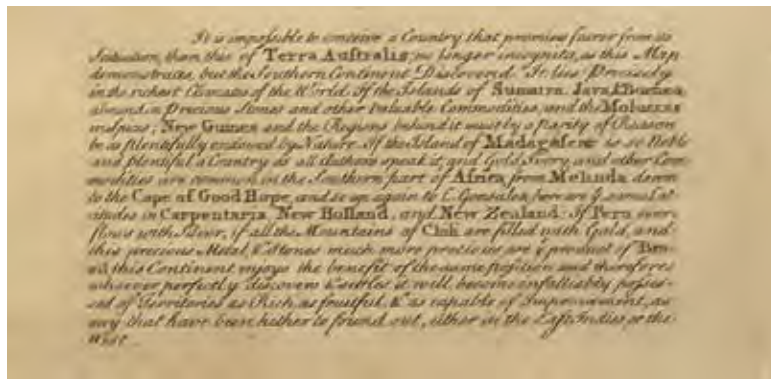 It is impossible to conceive a Country that promises fairer from its
Scituation, than this of Terra Australis; no longer incognita, as this Map
demonstrates, but the Southern Continent Discovered. It lies Precisely
in the richest Climates of the World. If the Islands of Sumatra, Java, & Borneo,
abound in Precious Stones and other Valuable Commodities, and the Moluccas
in Spices; New Guinea and the Regions behind it must by a parity of Reason
be as plentifully endowed by Nature. If the Island of Madagascar is so Noble
and plentiful a Country as all Authors speak it, and Gold, Ivory, and other Com
modities are common in the Southern part of Africa, from Melinda down
to the Cape of Good Hope, and so up again to C. Gonsalez; here are yᵉ same Lat
itudes in Carpentaria, New Holland, and New Zealand; If Peru over
flows with Silver, if all the Mountains of Chili are filled with Gold, and
this precious Metal, & Stones much more precious are yᵉ product of Bra-
zil, this Continent enjoys the benefit of the same position and therefore
whoever perfectly discovers & settles it will become infalliably posses-
sed of Territories as Rich, as fruitful, & as capable of Improvement, as
any that have been hitherto found out, either in the East Indies or the
West